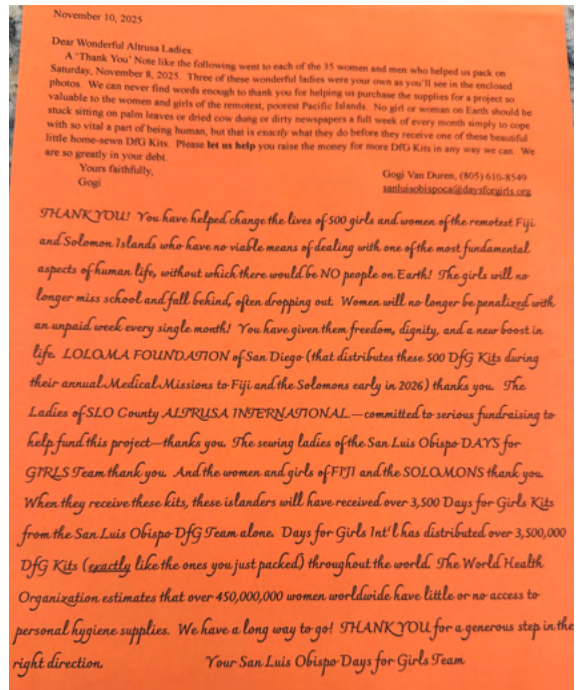 November 10, 2025
Dear Wonderful Altrusa Ladies:
A 'Thank You' Note like the following went to each of the 35 women and men who helped us pack on
Saturday, November 8, 2025. Three of these wonderful ladies were your own as you'll see in the enclosed
photos. We can never find words enough to thank you for helping us purchase the supplies for a project so
valuable to the women and girls of the remotest, poorest Pacific Islands. No girl or woman on Earth should be
stuck sitting on palm leaves or dried cow dung or dirty newspapers a full week of every month simply to cope
with so vital a part of being human, but that is exactly what they do before they receive one of these beautiful
little home-sewn DfG Kits. Please let us help you raise the money for more DfG Kits in any way we can. We
are so greatly in your debt.
Yours faithfully,
Gogi
Gogi Van Duren, (805) 610-8549
sanluisobispoca@daysforgirls.org
THANK YOU! You have helped change the lives of 500 girls and women of the remotest Fiji
and Solomon Islands who have no viable means of dealing with one of the most fundamental
aspects of human life, without which there would be NO people on Earth! The girls will no
longer miss school and fall behind, often dropping out. Women will no longer be penalized with
an unpaid week every single month! You have given them freedom, dignity, and a new boost in
life. LOLOMA FOUNDATION of San Diego (that distributes these 500 DfG Kits during
their annual Medical Missions to Fiji and the Solomons early in 2026) thanks you. The
Ladies of SLO County ALTRUSA INTERNATIONAL—committed to serious fundraising to
help fund this project—thanks you. The sewing ladies of the San Luis Obispo DAYS for
GIRLS Team thank you. And the women and girls of FIJI and the SOLOMONS thank you.
When they receive these kits, these islanders will have received over 3,500 Days for Girls Kits
from the San Luis Obispo DfG Team alone. Days for Girls Int'l has distributed over 3,500,000
DfG Kits (exactly like the ones you just packed) throughout the world. The World Health
Organization estimates that over 450,000,000 women worldwide have little or no access to
personal hygiene supplies. We have a long way to go! THANK YOU for a generous step in the
right direction. Your San Luis Obispo Days for Girls Team